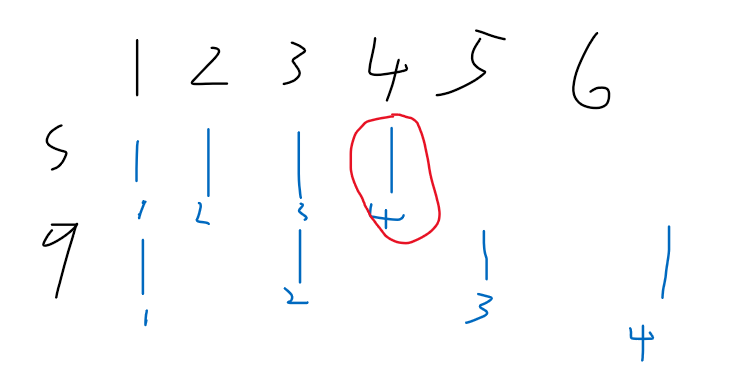 1 2 3 4 5 6
S | | | |
1 2 3 4
9 | | | |
1 2 3 4